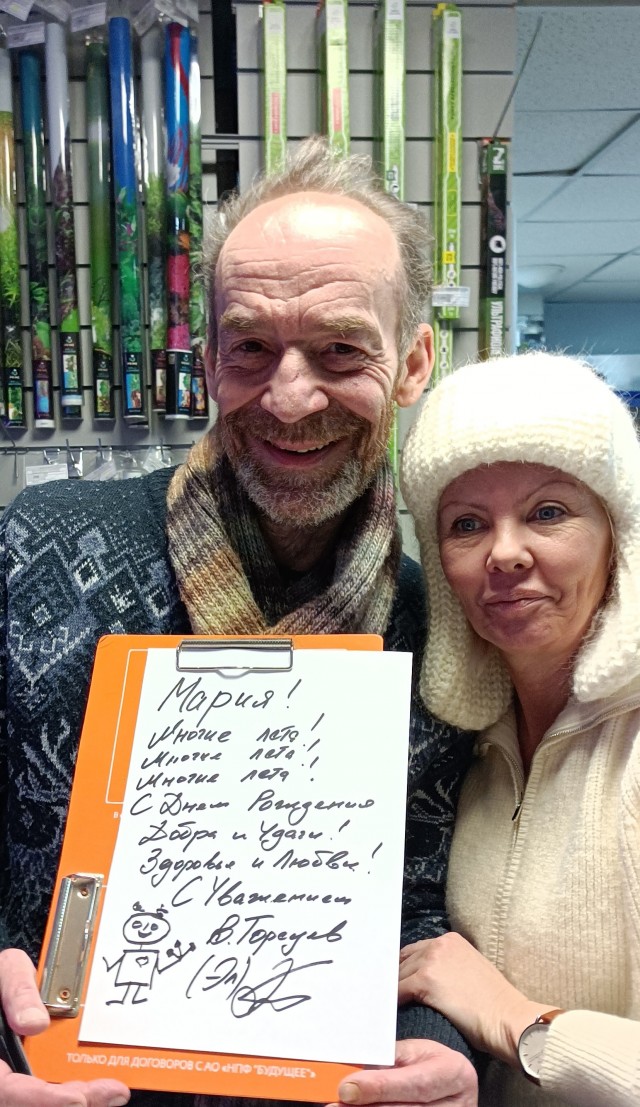 Мария!
Многие лета!
Многие лета!
Многие лета!
С Днем Рождения
Добра и Удачи!
Здоровья и Любви!
С Уважением
В. Торсуев
(Эл)
ТОЛЬКО ДЛЯ ДОГОВОРОВ С АО «НПФ "БУДУЩЕЕ"»